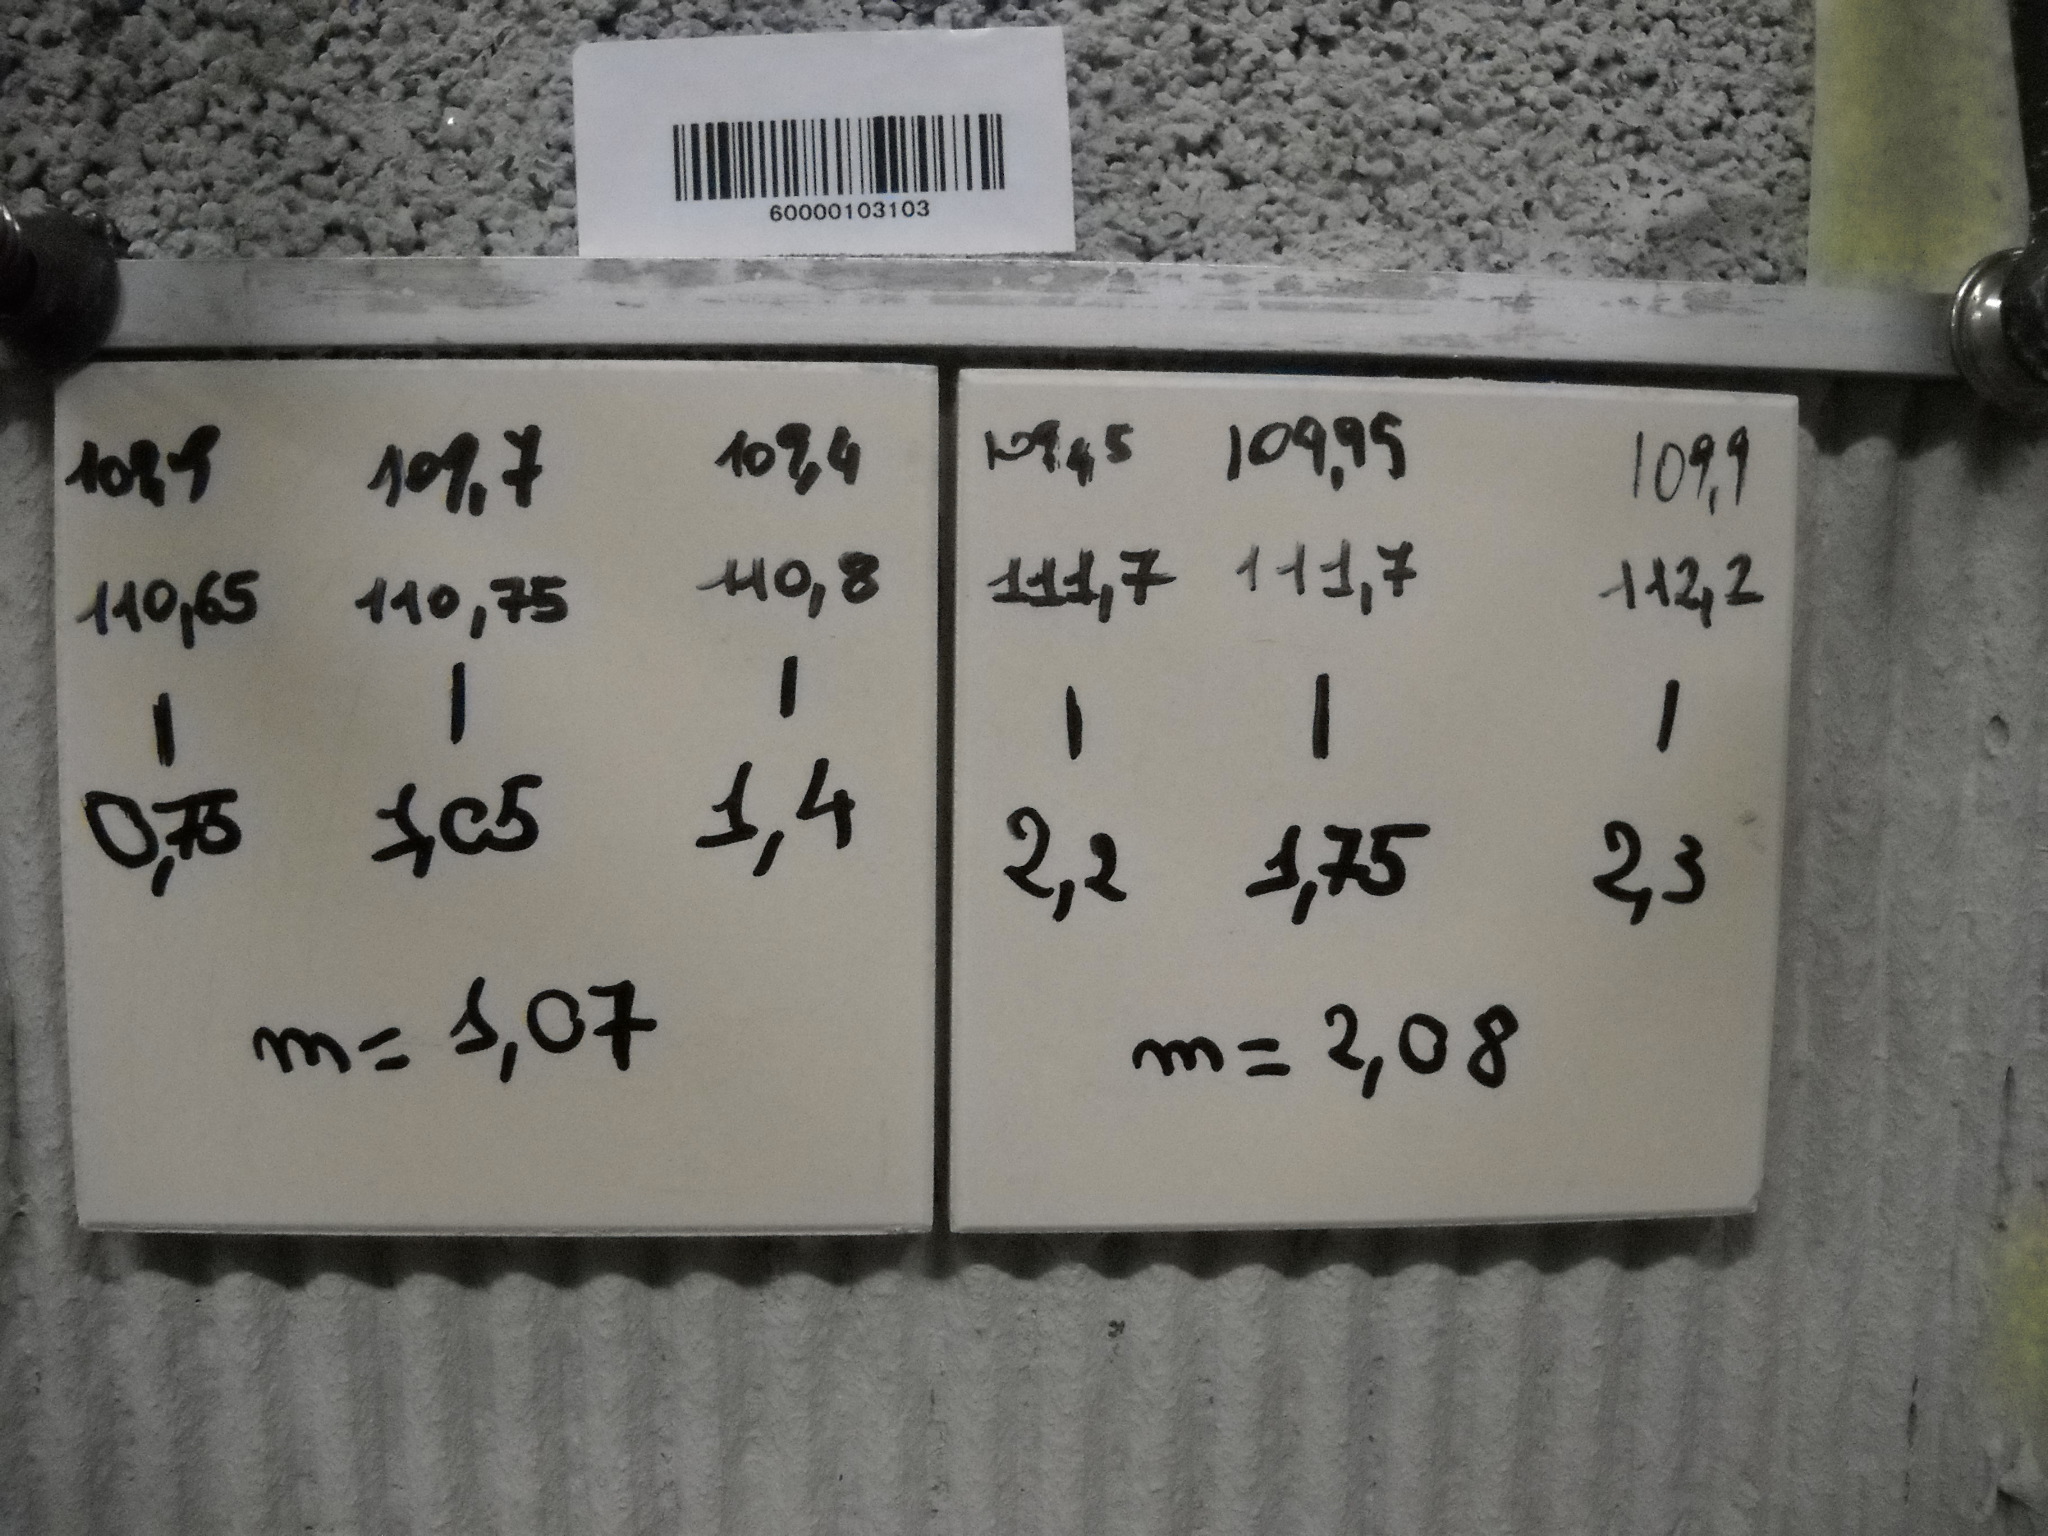 60000103103
109,9 109,7 109,4
110,65 110,75 110,8
| | |
0,75 1,05 1,4
m= 1,07
109,5 109,95 109,9
111,7 111,7 112,2
| | |
2,2 1,75 2,3
m= 2,08